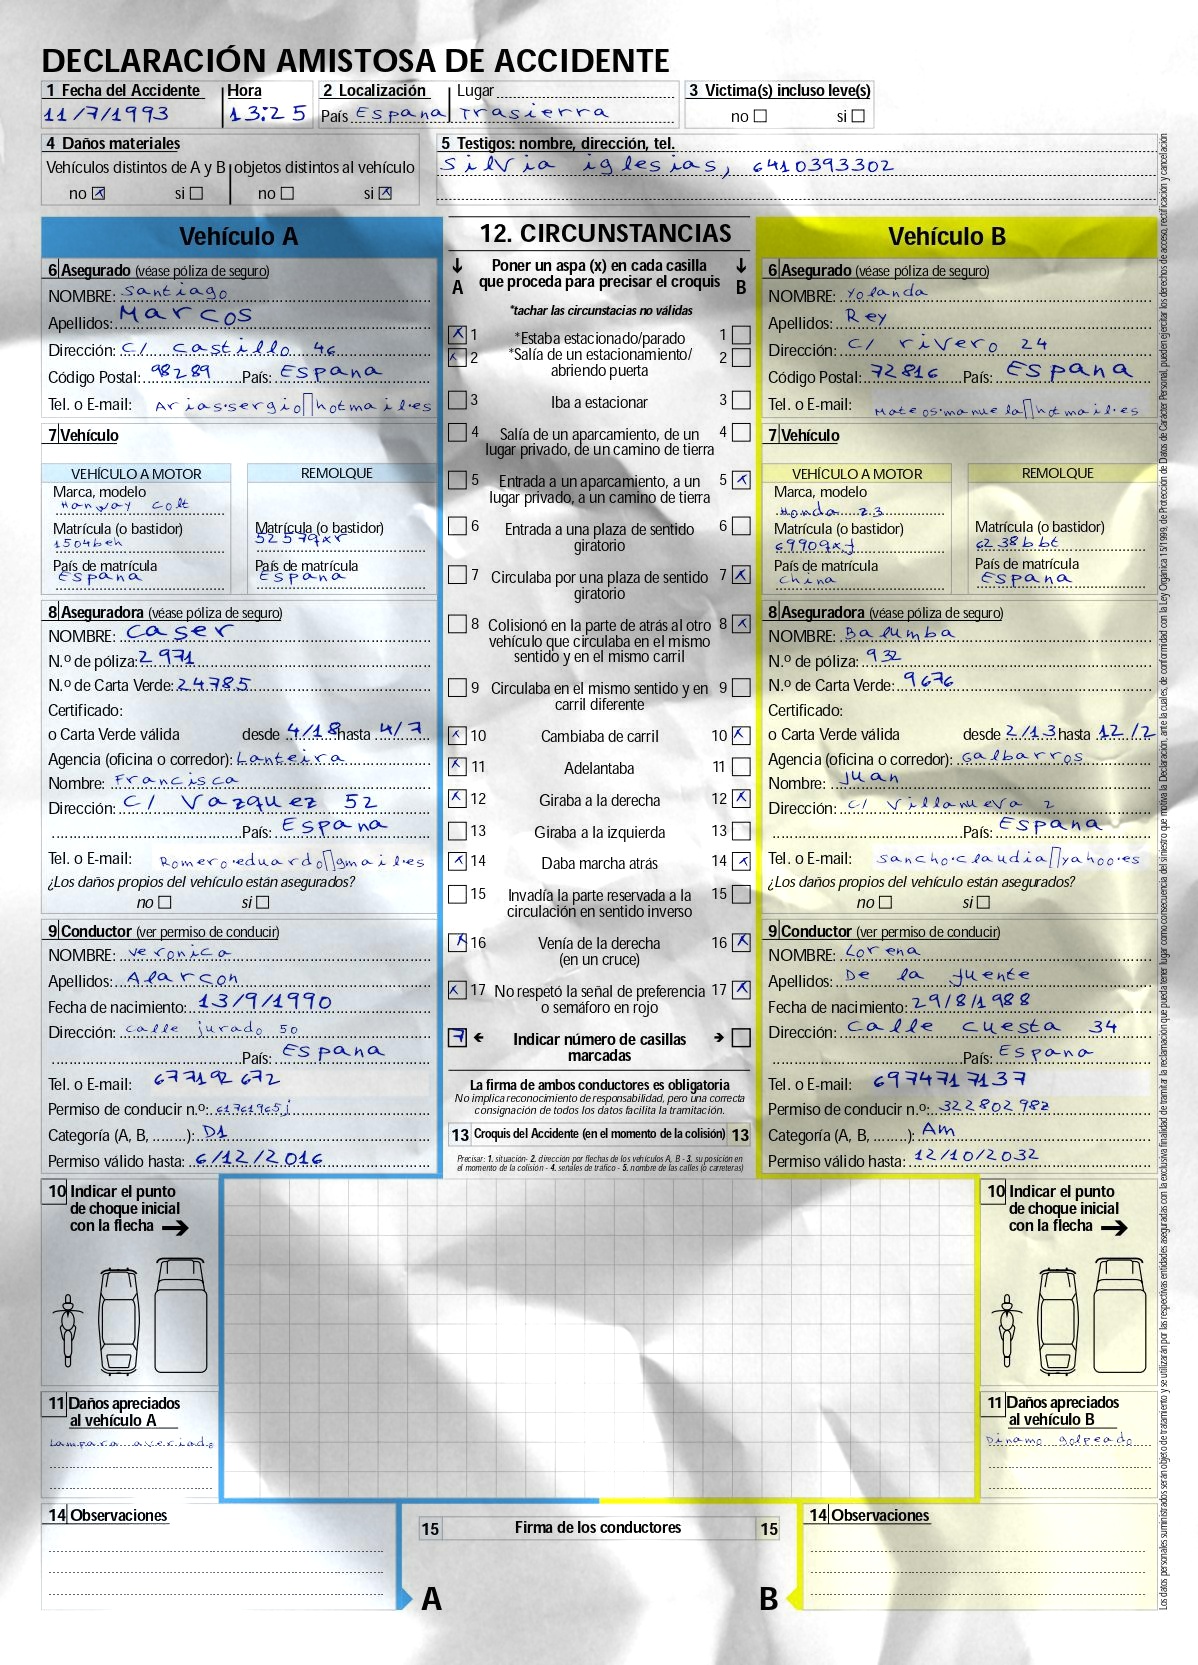 DECLARACIÓN AMISTOSA DE ACCIDENTE
1 Fecha del Accidente Hora 2 Localización Lugar 3 Victima(s) incluso leve(s)
11/7/1993 13:25 País Espana Trasierra no si
4 Daños materiales
Vehículos distintos de A y B objetos distintos al vehículo
no x si no si x
5 Testigos: nombre, dirección, tel.
Silvia iglesias, 6410393302
Vehículo A
6 Asegurado (véase póliza de seguro)
NOMBRE: Santiago
Apellidos: Marcos
Dirección: C/ castillo 46
Código Postal: 98289 País: Espana
Tel. o E-mail: Arias.sergio▯hotmail.es
7 Vehículo
VEHÍCULO A MOTOR REMOLQUE
Marca, modelo
Hanway colt
Matrícula (o bastidor) Matrícula (o bastidor)
1504beh 5257qxr
País de matrícula País de matrícula
Espana Espana
8 Aseguradora (véase póliza de seguro)
NOMBRE: caser
N.º de póliza: 2971
N.º de Carta Verde: 24785
Certificado:
o Carta Verde válida desde 4/18 hasta 4/7
Agencia (oficina o corredor): Lanteira
Nombre: Francisca
Dirección: C/ Vazquez 52
País: Espana
Tel. o E-mail: Romero.eduardo▯gmail.es
¿Los daños propios del vehículo están asegurados?
no si
9 Conductor (ver permiso de conducir)
NOMBRE: veronica
Apellidos: Alarcon
Fecha de nacimiento: 13/9/1990
Dirección: calle jurado 50
País: Espana
Tel. o E-mail: 677192672
Permiso de conducir n.º: 61761965j
Categoría (A, B, ........): D1
Permiso válido hasta: 6/12/2016
12. CIRCUNSTANCIAS
A Poner un aspa (x) en cada casilla que proceda para precisar el croquis B
*tachar las circunstacias no válidas
x 1 *Estaba estacionado/parado 1
x 2 *Salía de un estacionamiento/ abriendo puerta 2
3 Iba a estacionar 3
4 Salía de un aparcamiento, de un lugar privado, de un camino de tierra 4
5 Entrada a un aparcamiento, a un lugar privado, a un camino de tierra 5 x
6 Entrada a una plaza de sentido giratorio 6
7 Circulaba por una plaza de sentido giratorio 7 x
8 Colisionó en la parte de atrás al otro vehículo que circulaba en el mismo sentido y en el mismo carril 8 x
9 Circulaba en el mismo sentido y en carril diferente 9
x 10 Cambiaba de carril 10 x
x 11 Adelantaba 11
x 12 Giraba a la derecha 12 x
13 Giraba a la izquierda 13
x 14 Daba marcha atrás 14 x
15 Invadía la parte reservada a la circulación en sentido inverso 15
x 16 Venía de la derecha (en un cruce) 16 x
x 17 No respetó la señal de preferencia o semáforo en rojo 17 x
7 Indicar número de casillas marcadas
La firma de ambos conductores es obligatoria
No implica reconocimiento de responsabilidad, pero una correcta
consignación de todos los datos facilita la tramitación.
13 Croquis del Accidente (en el momento de la colisión) 13
Precisar: 1. situación- 2. dirección por flechas de los vehículos A, B - 3. su posición en
el momento de la colisión - 4. señales de tráfico - 5. nombre de las calles (o carreteras)
Vehículo B
6 Asegurado (véase póliza de seguro)
NOMBRE: Yolanda
Apellidos: Rey
Dirección: C/ rivero 24
Código Postal: 72816 País: Espana
Tel. o E-mail: Mateos.manuela▯hotmail.es
7 Vehículo
VEHÍCULO A MOTOR REMOLQUE
Marca, modelo
Honda z3
Matrícula (o bastidor) Matrícula (o bastidor)
6990qxf 6238bbt
País de matrícula País de matrícula
china Espana
8 Aseguradora (véase póliza de seguro)
NOMBRE: Balumba
N.º de póliza: 932
N.º de Carta Verde: 9676
Certificado:
o Carta Verde válida desde 2/13 hasta 12/2
Agencia (oficina o corredor): Galbarros
Nombre: Juan
Dirección: C/ Villanueva 2
País: Espana
Tel. o E-mail: Sancho.claudia▯yahoo.es
¿Los daños propios del vehículo están asegurados?
no si
9 Conductor (ver permiso de conducir)
NOMBRE: Lorena
Apellidos: De la fuente
Fecha de nacimiento: 29/8/1988
Dirección: Calle cuesta 34
País: Espana
Tel. o E-mail: 6974717137
Permiso de conducir n.º: 32280298z
Categoría (A, B, ........): Am
Permiso válido hasta: 12/10/2032
10 Indicar el punto
de choque inicial
con la flecha
11 Daños apreciados
al vehículo A
Lampara averiado
14 Observaciones
10 Indicar el punto
de choque inicial
con la flecha
11 Daños apreciados
al vehículo B
Dinamo golpeado
14 Observaciones
15 Firma de los conductores 15
A B
Los datos personales suministrados serán objeto de tratamiento y se utilizarán por las respectivas entidades aseguradas con la exclusiva finalidad de tramitar la reclamación que pueda tener lugar como consecuencia del siniestro que motiva la Declaración, ante la cuales, de conformidad con la Ley Orgánica 15/1999, de Protección de Datos de Carácter Personal, pueden ejercitar los derechos de acceso, rectificación y cancelación